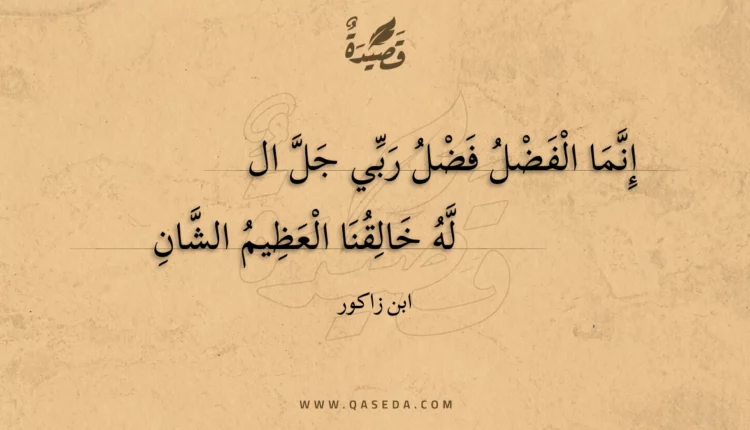 قَصِيْدَةٌ
إِنَّمَا الْفَضْلُ فَضْلُ رَبِّي جَلَّ ال
لَّهُ خَالِقُنَا الْعَظِيمُ الشَّانِ
ابن زاكور
WWW.QASEDA.COM